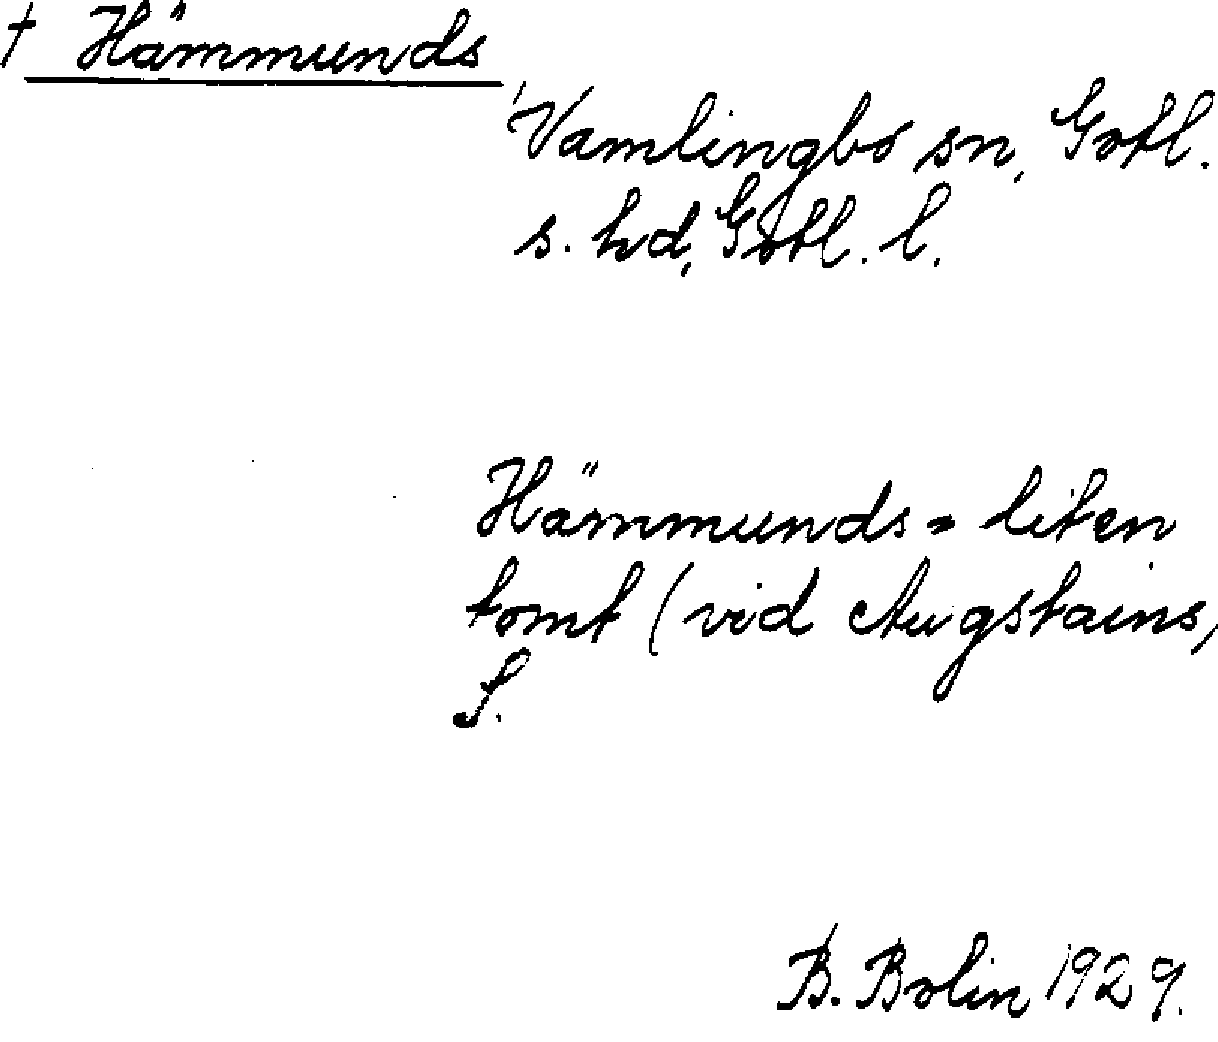 † Hämmunds
Vamlingbo sn, Gotl.
s. hd, Gotl. l.
Hämmunds = liten
tomt (vid Augstains,
S.
B. Bolin 1929.